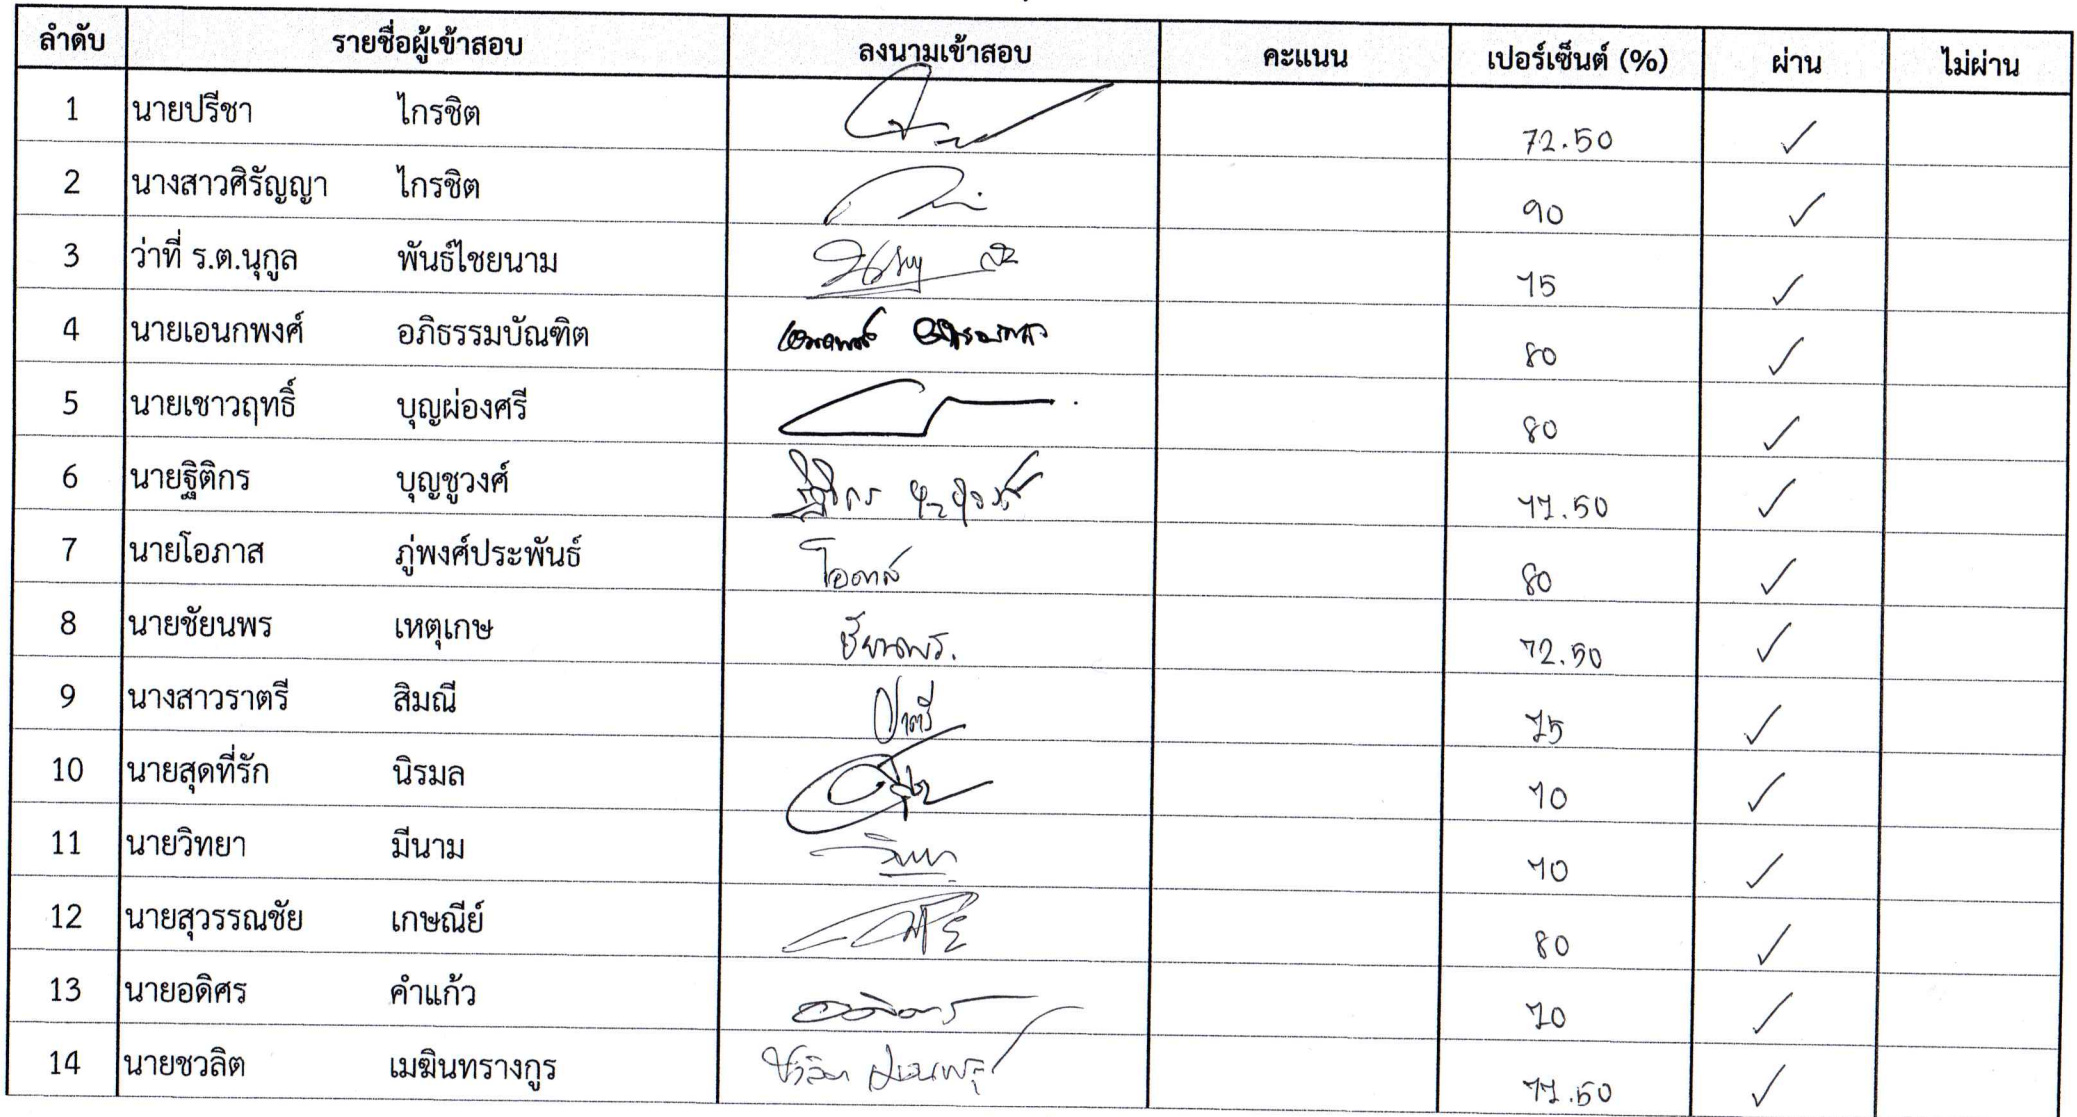 ลำดับ รายชื่อผู้เข้าสอบ ลงนามเข้าสอบ คะแนน เปอร์เซ็นต์ (%) ผ่าน ไม่ผ่าน
1 นายปรีชา ไกรชิต 72.50 ✓
2 นางสาวศิรัญญา ไกรชิต 90 ✓
3 ว่าที่ ร.ต.นุกูล พันธ์ไชยนาม 75 ✓
4 นายเอนกพงศ์ อภิธรรมบัณฑิต 80 ✓
5 นายเชาวฤทธิ์ บุญผ่องศรี 80 ✓
6 นายฐิติกร บุญชูวงศ์ ฐิติกร บุญชูวงศ์ 77.50 ✓
7 นายโอภาส ภู่พงศ์ประพันธ์ โอภาส 80 ✓
8 นายชัยนพร เหตุเกษ ชัยนพร. 72.50 ✓
9 นางสาวราตรี สิมณี ราตรี 75 ✓
10 นายสุดที่รัก นิรมล 70 ✓
11 นายวิทยา มีนาม วิทยา 70 ✓
12 นายสุวรรณชัย เกษณีย์ 80 ✓
13 นายอดิศร คำแก้ว อดิศร 70 ✓
14 นายชวลิต เมฆินทรางกูร ชวลิต 77.50 ✓